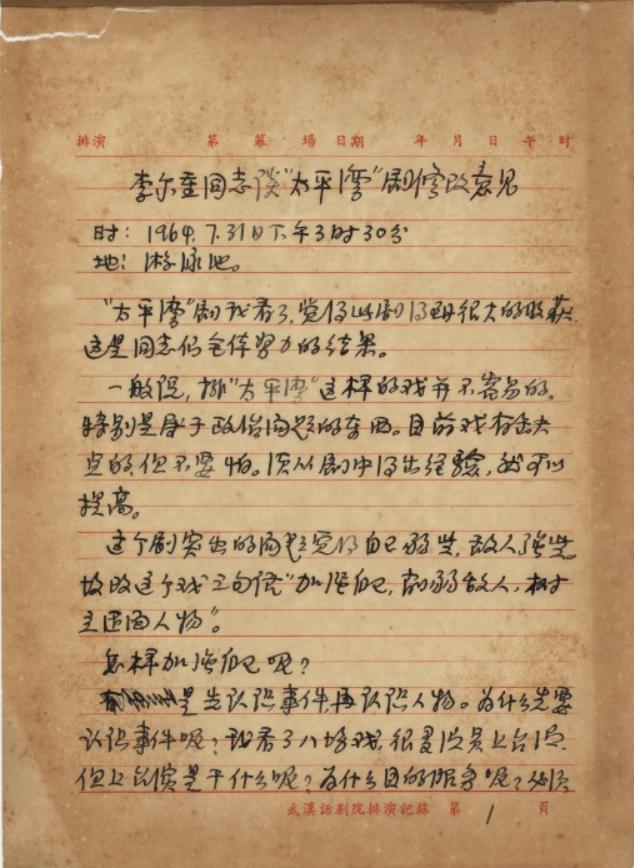 排演 第 幕 場 日期 年 月 日 午 时
李尔重同志谈"太平湾"剧修改意见
时：1964.7.31日下午3时30分
地：游泳池。
"太平湾"剧我看了,觉得此剧得到很大的收获.
这是同志们全体努力的结果。
一般说,排"太平湾"这样的戏并不容易的。
特别是属于政治问题的东西。目前戏有缺
点的,但不要怕。须从剧中得出经验,就可以
提高。
这个剧突出的问题觉得自己弱些,敌人强些。
故改这个戏三句话"加强自己,削弱敌人,树
立正面人物"。
怎样加强自己呢？
是先认识事件,再认识人物。为什么先要
认识事件呢？我看了八场戏,很多演员上台演.
但上台演是干什么呢？为什么目的服务呢？必须
武漢話剧院排演記錄 第 1 頁